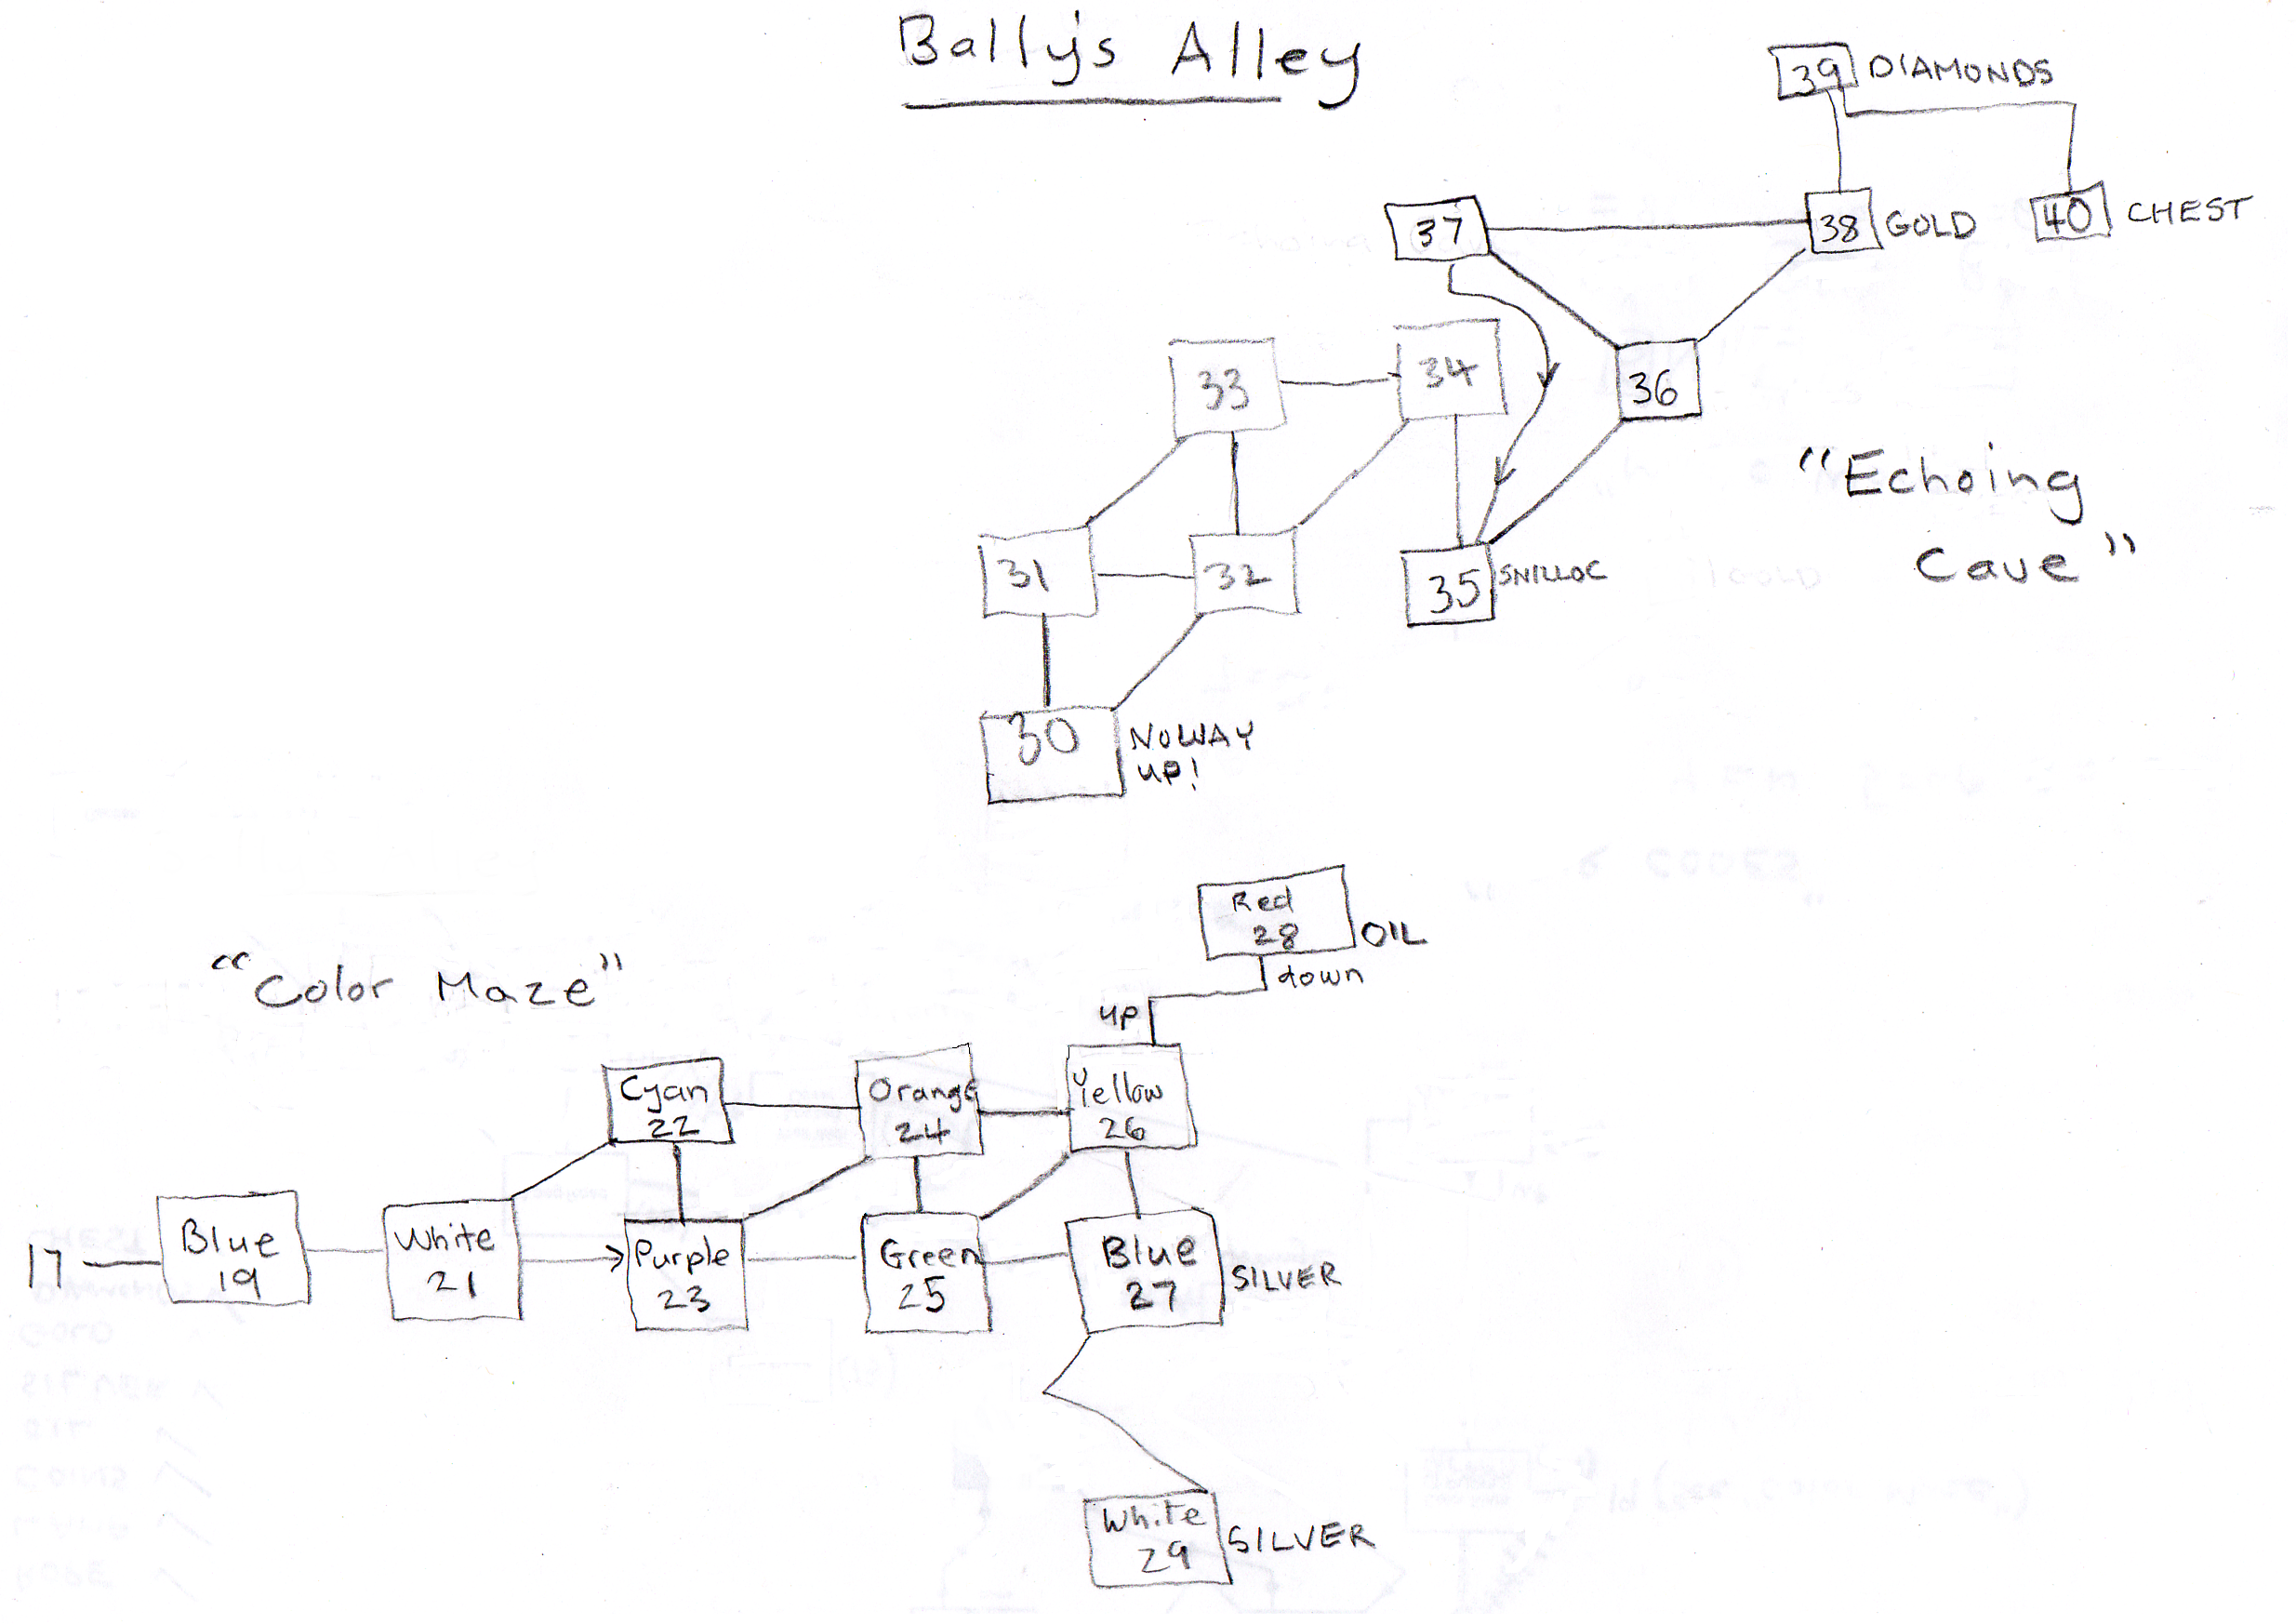 Bally's Alley
39 DIAMONDS
37
38 GOLD
40 CHEST
33
34
36
"Echoing
Cave"
31
32
35 SNILLOC
30 NOWAY
UP!
Red
28 OIL
down
up
"Color Maze"
Cyan
22
Orange
24
Yellow
26
17
Blue
19
White
21
Purple
23
Green
25
Blue
27 SILVER
White
29 SILVER